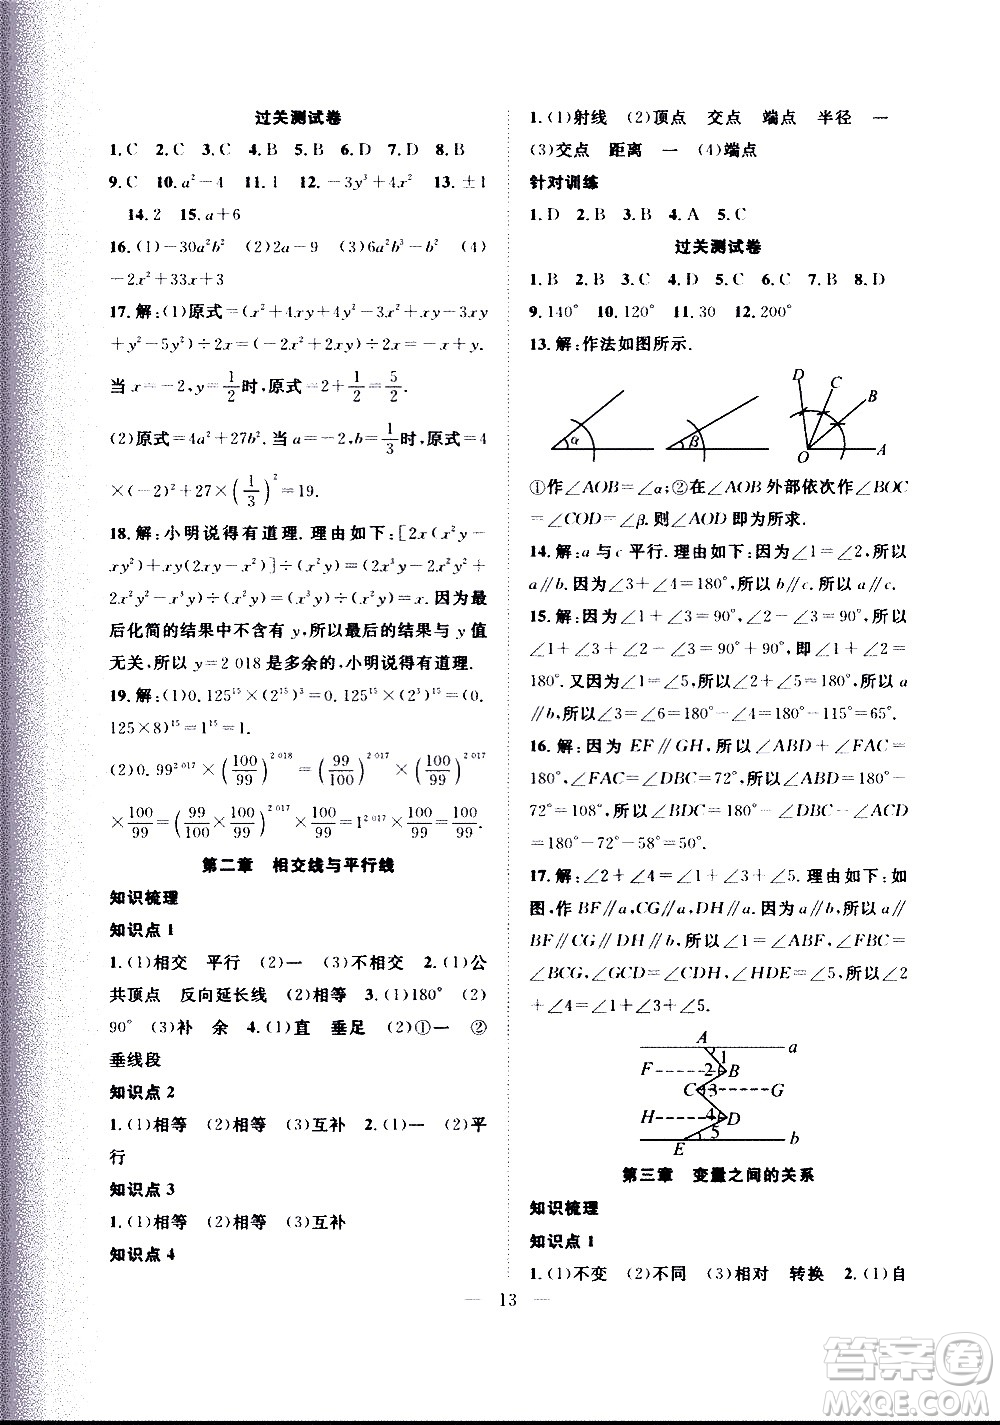 过关测试卷
1.C 2.C 3.C 4.B 5.B 6.B 7.B 8.B
9.C 10.a²－4 11.1 12.－3y³＋2x² 13.±1
14.2 15.a＋6
16.(1)－30a²b² (2)2a－9 (3)6a²b³－b² (4)
－2x²＋33x＋33
17.解:(1)原式＝(x²＋4xy＋4y²－3x²－3xy＋xy
＋y²－5y²)÷2x＝(－2x²＋2xy)÷2x＝－x＋y.
当x＝－2,y＝1/2时,原式＝2＋1/2＝5/2.
(2)原式＝4a²＋27b².当a＝－2,b＝1/3时,原式＝4
×(－2)²＋27×(1/3)²＝19.
18.解:小明说得有道理.理由如下:[2x(x²y－
xy²)＋xy(2xy－x²)]÷(x²y)＝(2x³y－
2x²y²＋2x²y²－x³y)÷(x²y)＝(x³y)÷(x²y)＝x.因为最
后化简的结果中不含有y,所以最后的结果与y值
无关,所以y＝2 018是多余的,小明说得有道理.
19.解:(1)0.125¹⁵×(2¹⁵)³＝0.125¹⁵×(2³)¹⁵＝(0.
125×8)¹⁵＝1¹⁵＝1.
(2)0.99²⁰¹⁷×(100/99)²⁰¹⁸＝(99/100)²⁰¹⁷×(100/99)²⁰¹⁷
×100/99＝(99/100×100/99)²⁰¹⁷×100/99＝1²⁰¹⁷×100/99＝100/99.
第二章 相交线与平行线
知识梳理
知识点1
1.(1)相交 平行 (2)一 (3)不相交 2.(1)公
共顶点 反向延长线 (2)相等 3.(1)180° (2)
90° (3)补 余 4.(1)直 垂足 (2)①一 ②
垂线段
知识点2
1.(1)相等 (2)相等 (3)互补 2.(1)一 (2)平
行
知识点3
1.(1)相等 (2)相等 (3)互补
知识点4
1.(1)射线 (2)顶点 交点 端点 半径 一
(3)交点 距离 一 (4)端点
针对训练
1.D 2.B 3.B 4.A 5.C
过关测试卷
1.B 2.B 3.C 4.D 5.C 6.C 7.B 8.D
9.140° 10.120° 11.30 12.200°
13.解:作法如图所示.
α β D C B O A
①作∠AOB＝∠α;②在∠AOB外部依次作∠BOC
＝∠COD＝∠β.则∠AOD即为所求.
14.解:a与c平行.理由如下:因为∠1＝∠2,所以
a∥b.因为∠3＋∠4＝180°,所以b∥c,所以a∥c.
15.解:因为∠1＋∠2＝180°,∠2－∠3＝∠1,所以
∠1＋∠3＝∠2,所以∠1＋∠1＋∠3＝180°.
a∥b,所以∠3＝∠6＝180°－∠5＝180°－115°＝65°.
16.解:因为EF∥GH,所以∠ABD＋∠FAC＝
180°,所以∠DBC＝180°－∠FAC＝180°－
72°＝108°,所以∠BDC＝180°－∠ABD－∠ACD
＝180°－72°－58°＝50°.
17.解:∠1＋∠3＋∠5＝∠2＋∠4.理由如下:如
图,作BF∥a,CG∥a,DH∥a.因为a∥b,所以a∥
BF∥CG∥DH∥b,所以∠1＝∠ABF,∠FBC＝
∠BCG,∠GCD＝∠CDH,∠HDE＝∠5,所以∠2
＋∠4＝∠1＋∠3＋∠5.
A 1 a
F 2 B
C 3 G
H 4 D
E 5 b
第三章 变量之间的关系
知识梳理
知识点1
1.(1)不变 (2)不同 (3)相对 转换 2.(1)自
— 13 —
答案圈
MXQE.COM